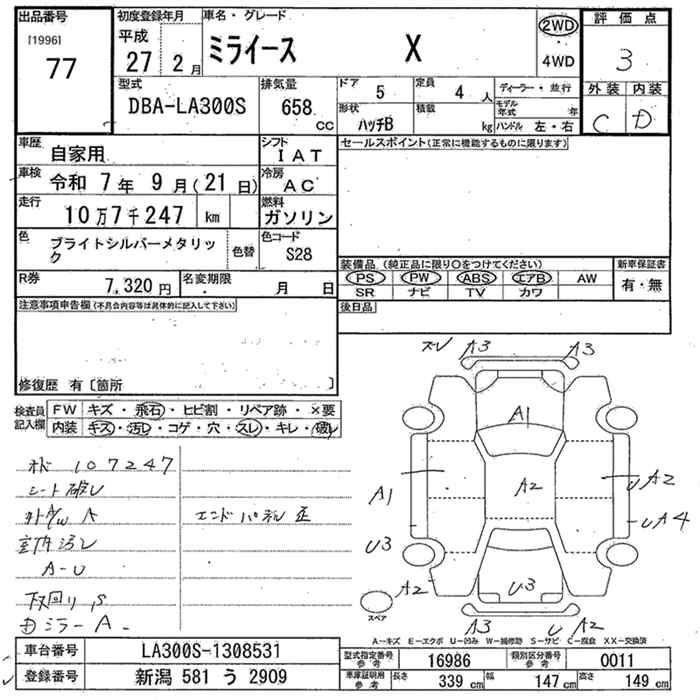 出品番号 初度登録年月 車名・グレード 2WD 評価点
[1996] 平成
77 27年 2月 ミライース X 4WD 3
型式 排気量 ドア 定員 ディーラー・並行 外装 内装
DBA-LA300S 658 cc 5 4人 モデル年式 年 C D
形状 積載 ハンドル 左・右
ハッチB kg
車歴 自家用 シフト IAT セールスポイント(正常に機能するものに限ります)
車検 令和 7年 9月(21日) 冷房 AC
走行 10万7千247 km 燃料 ガソリン
色 ブライトシルバーメタリック 色替 色コード S28
装備品(純正品に限り○をつけてください) 新車保証書
R券 7,320円 名変期限 月 日 PS PW ABS エアB AW 有・無
SR ナビ TV カワ
注意事項申告欄(不具合内容等は具体的に記入して下さい) 後日品
修復歴 有〔箇所
検査員記入欄 FW キズ・飛石・ヒビ割・リペア跡・×要
内装 キズ・汚レ・コゲ・穴・スレ・キレ・破レ
ズレ A3 A3
A1
オド 107247
シート破レ A1 A2 A2
A エンドパネル正 A4
室内汚レ U3
A-U A2 U3
下回りS スペア
DミラーA A3 U A2
A-キズ E-エクボ U-凹み W-補修跡 S-サビ C-腐食 XX-交換済
車台番号 LA300S-1308531 型式指定番号 参考 16986 類別区分番号 参考 0011
登録番号 新潟 581 う 2909 車庫証明用 参考 長さ 339 cm 幅 147 cm 高さ 149 cm